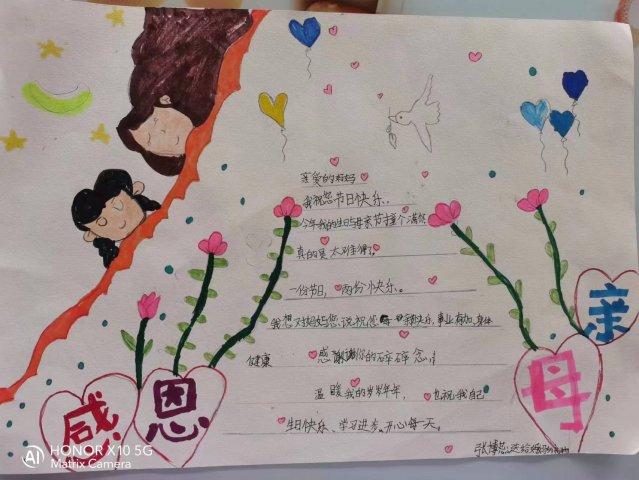 亲爱的妈妈
我祝您节日快乐.
今年我的生日与母亲节撞个满怀
真的是太难得了,
一份节日, 两份小快乐.
我想对妈妈您说祝您母亲节快乐,事业有加,身体
健康 感谢谢你的碎碎念,
温暖我的岁岁年年, 也祝我自己
生日快乐、学习进步、开心每一天.
送给
感恩
母亲
AI HONOR X10 5G
Matrix Camera